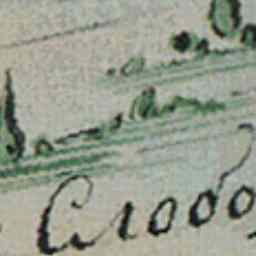 Слобо